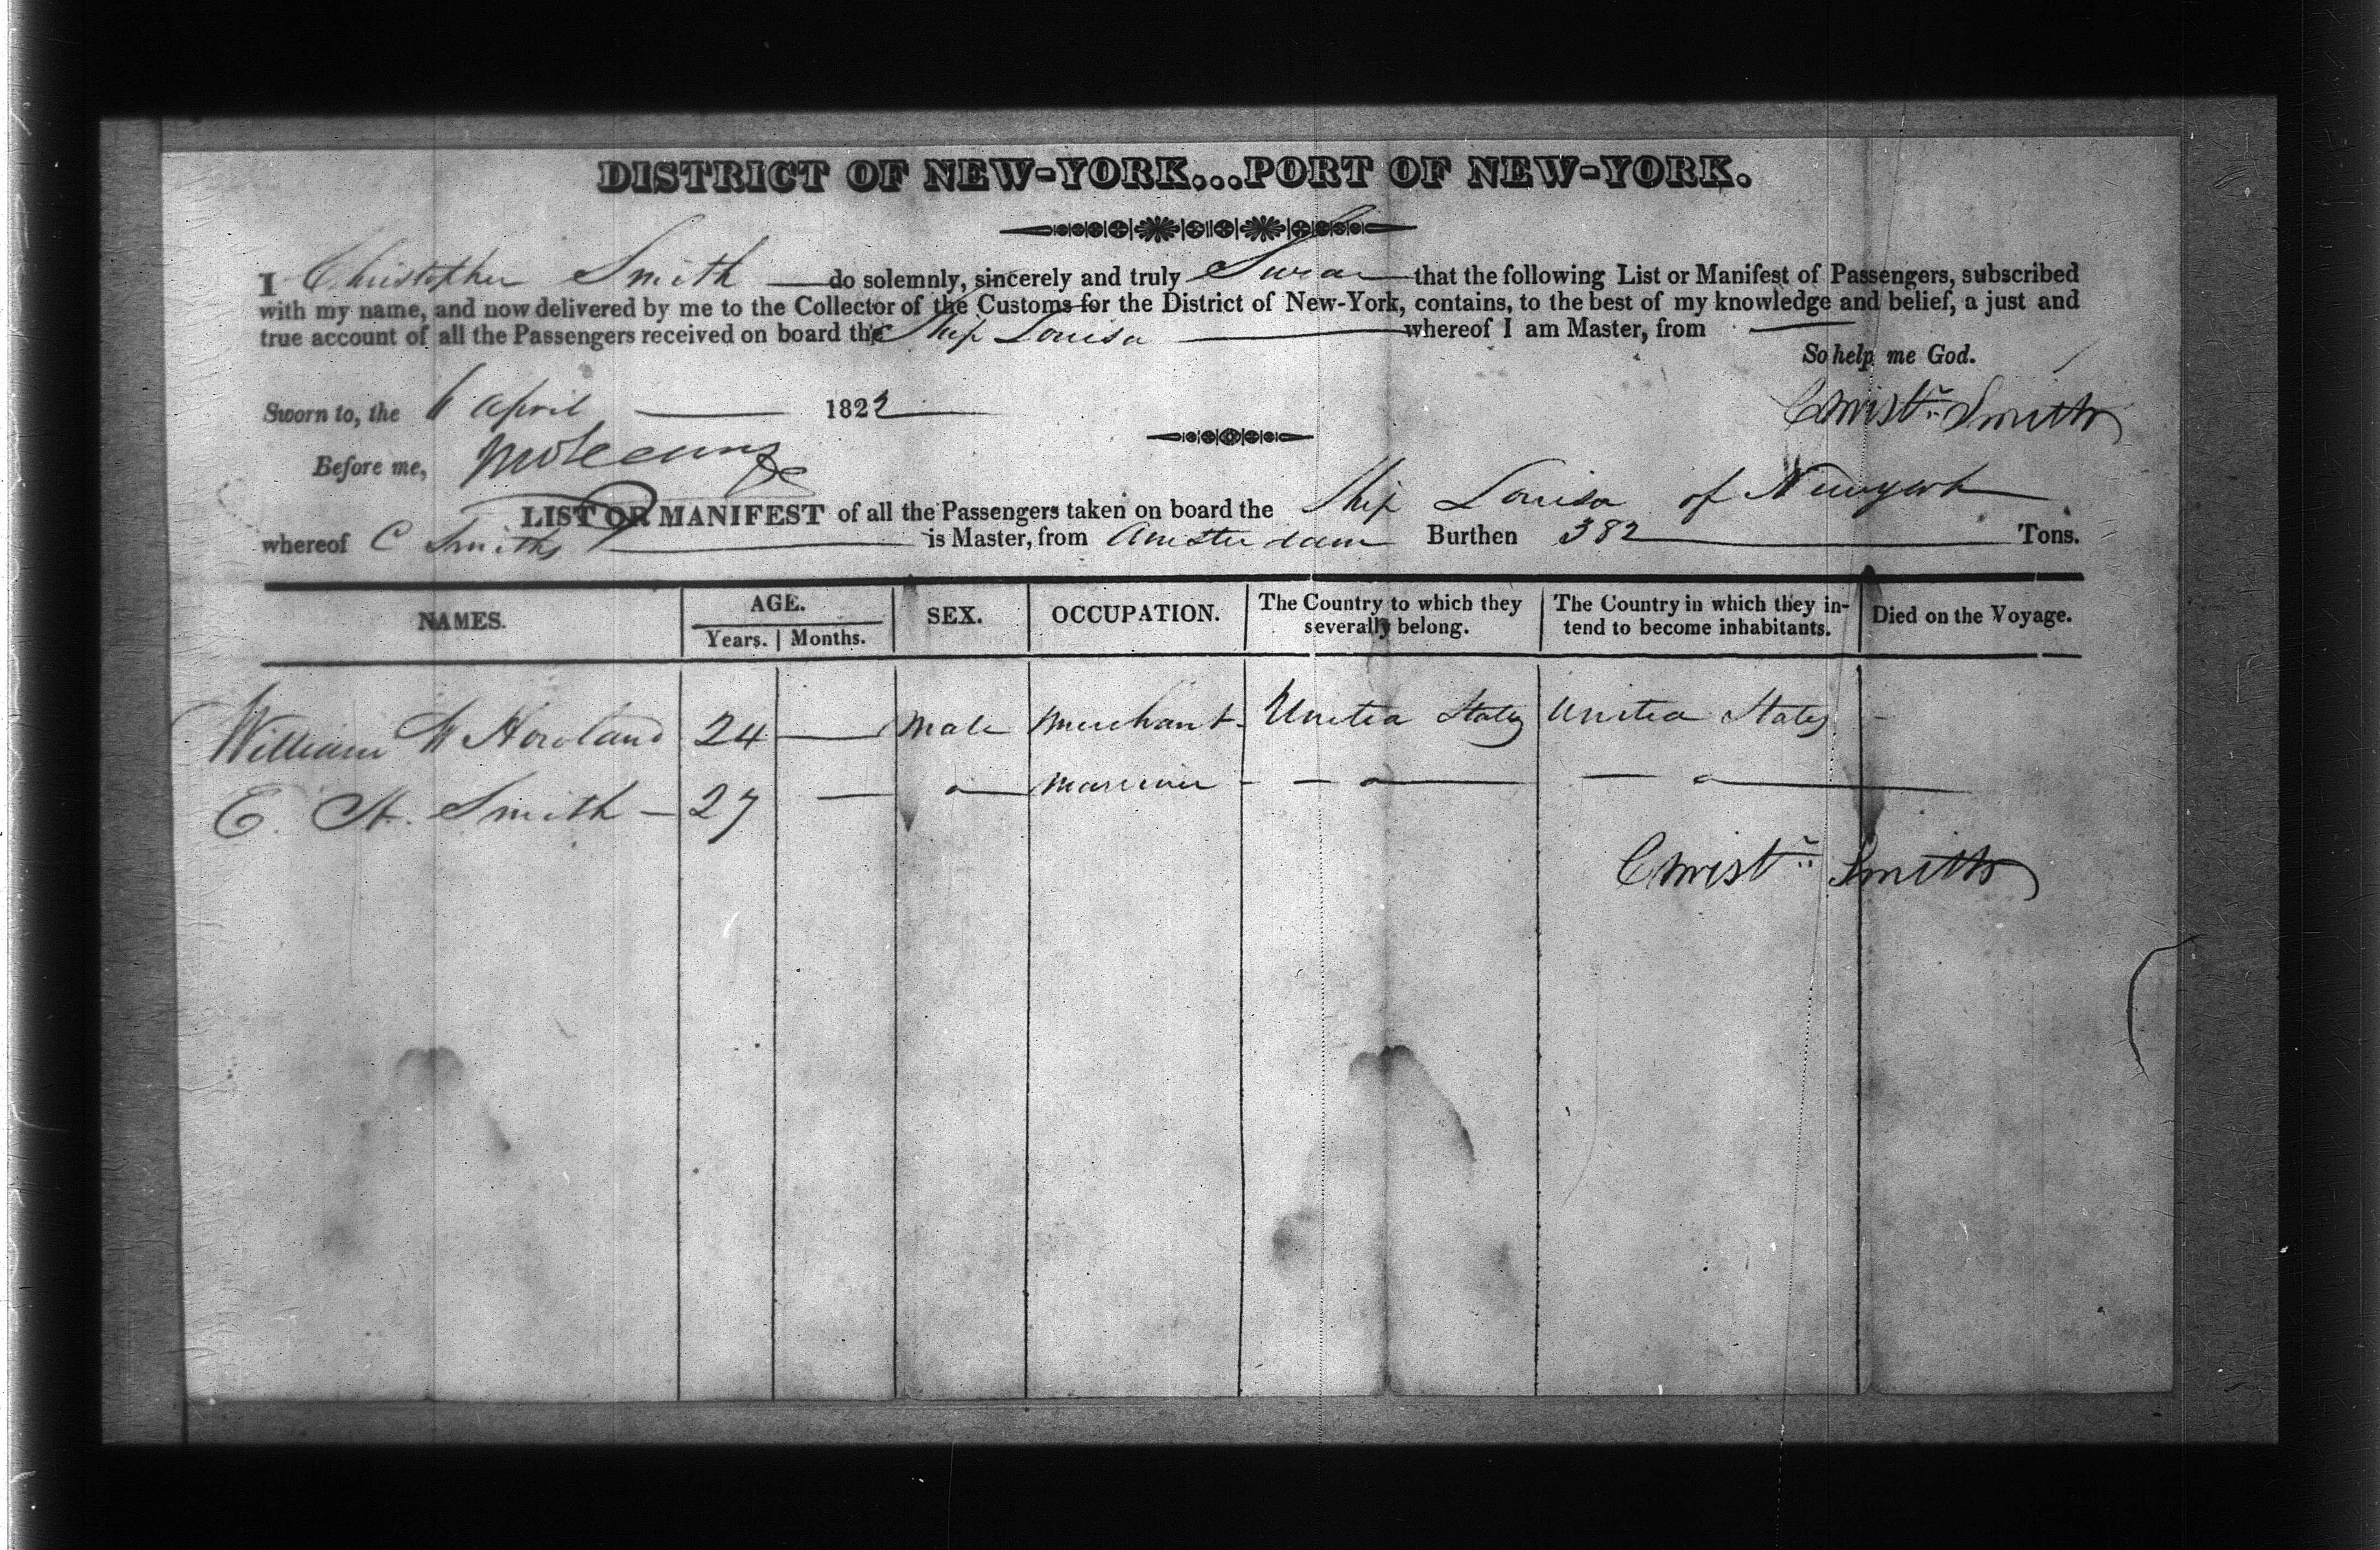 DISTRICT OF NEW-YORK...PORT OF NEW-YORK.
I Christopher Smith do solemnly, sincerely and truly Swear that the following List or Manifest of Passengers, subscribed
with my name, and now delivered by me to the Collector of the Customs for the District of New-York, contains, to the best of my knowledge and belief, a just and
true account of all the Passengers received on board the Ship Louisa whereof I am Master, from
So help me God.
Sworn to, the 6 April 1822
Christr Smith
Before me,
LIST OR MANIFEST of all the Passengers taken on board the Ship Louisa of Newyork
whereof C Smith is Master, from Amsterdam Burthen 382 Tons.
NAMES. AGE. Years. Months. SEX. OCCUPATION. The Country to which they severally belong. The Country in which they intend to become inhabitants. Died on the Voyage.
William W Howland 24 — Male Merchant United States United States -
E. A. Smith — 27 — " Marriner - — " — — " —
Christr Smith